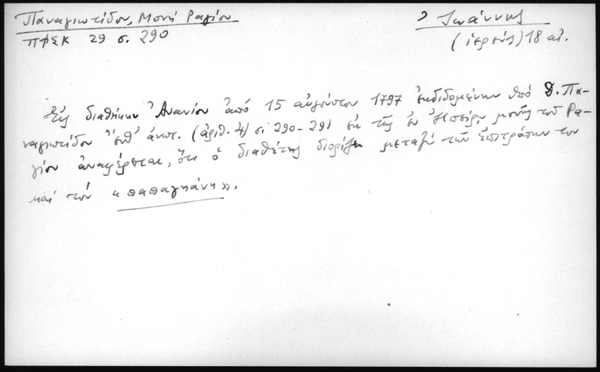 Παναγιωτίδου, Μονή Ραγίου
ΠΦΣΚ 29 σ. 290
Ἰωάννης
(ἱερεύς) 18 αἰ.
Εἰς διαθήκην Ἀνανίου ἀπό 15 αὐγούστου 1797 ἐκδιδομένην ὑπό Δ. Πα-
ναγιωτίδου ἔνθ' ἀνωτ. (ἀριθ. 4) σ. 290-291 ἐκ τῆς ἐν Ἠπείρῳ μονῆς τοῦ Ρα-
γίου ἀναφέρεται, ὅτι ὁ διαθέτης διορίζει μεταξύ τῶν ἐπιτρόπων του
καί τόν «παπαγιάνη».